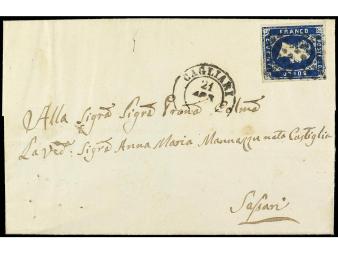 FRANCO
CAGLIARI
21
Alla Sigra Sigra Prona Colma
La Ved. Sigra Anna Maria Mannazzu nata Castiglia
Sassari